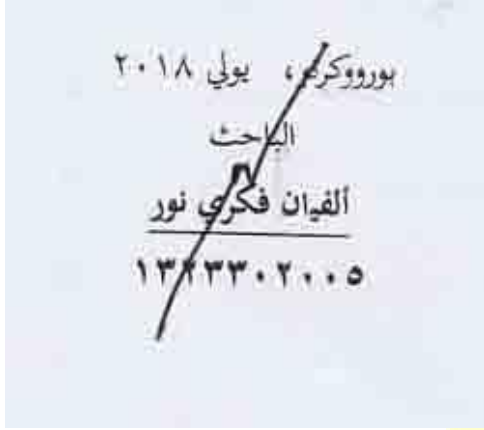 بورووكرتو، يولي ٢٠١٨
الباحث
ألفيان فكري نور
١٣٢٣٣٠٢٠٠٥